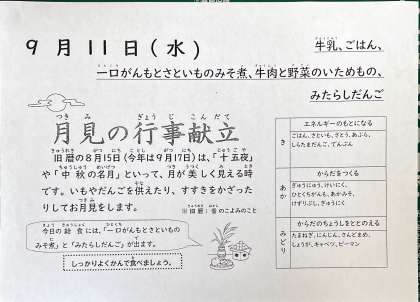 9月11日(水)
牛乳、ごはん、
一口がんもとさといものみそ煮、牛肉と野菜のいためもの、
みたらしだんご
月見の行事献立
旧暦の8月15日(今年は9月17日)は、「十五夜」
や「中秋の名月」といって、月が美しく見える時
です。いもやだんごを供えたり、すすきをかざった
りしてお月見をします。
※旧暦:昔のこよみのこと
今日の給食には、「一口がんもとさといもの
みそ煮」と「みたらしだんご」が出ます。
しっかりよくかんで食べましょう。
エネルギーのもとになる
き
ごはん、さといも、さとう、あぶら、
しらたまだんご、でんぷん
からだをつくる
あか
ぎゅうにゅう、けいにく、
ひとくちがんも、あかみそ、
けずりぶし、ぎゅうにく
からだのちょうしをととのえる
みどり
たまねぎ、にんじん、さんどまめ、
しょうが、キャベツ、ピーマン